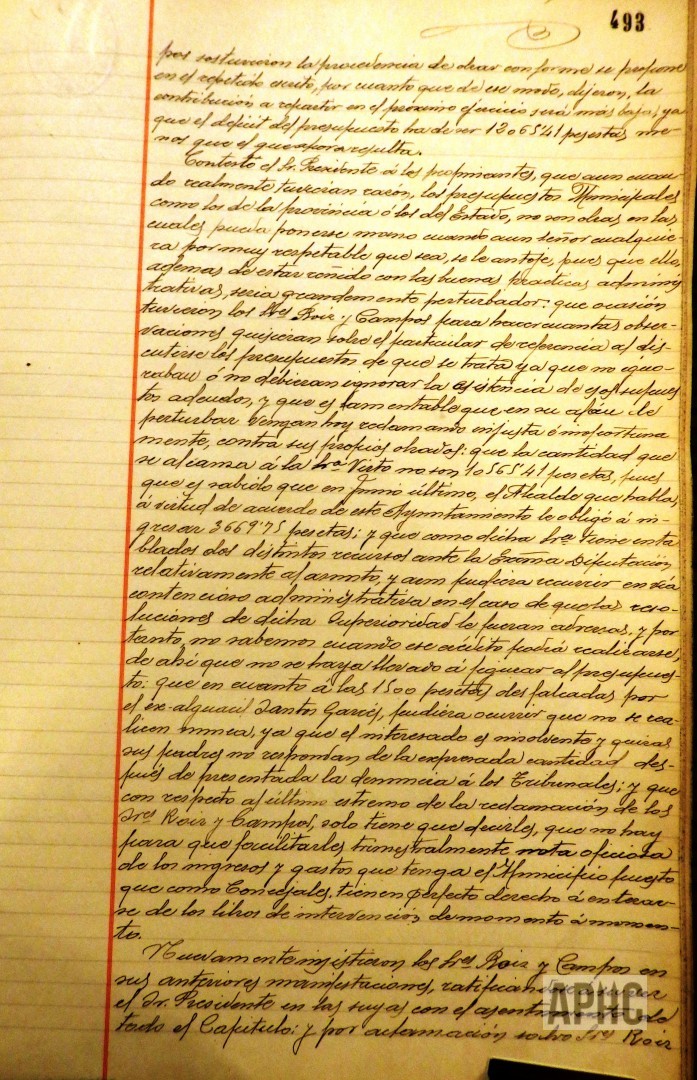 493
pos sostuvieron la procedencia de obrar conforme se propone
en el repetido escrito, por cuanto que de ese modo, dijeron, la
contribución a repartir en el próximo ejercicio será más baja, ya
que el déficit del presupuesto ha de ser 12065'41 pesetas me-
nos que el que ahora resulta.
Contestó el Sr. Presidente á los proponentes, que aun cuan-
do realmente tuvieran razón, los presupuestos Municipales
como los de la provincia ó los del Estado, no son obras en las
cuales pueda ponerse mano cuando a un señor cualquie-
ra por muy respetable que sea, se le antoje, pues que ello,
ademas de estar reñido con las buenas practicas adminis
trativas, seria grandemente perturbador: que ocasión
tuvieron los Sres Roiz y Campos para hacer cuantas obser-
vaciones quisieran sobre el particular de referencia al dis-
cutirse los presupuestos de que se trata ya que no igno-
raban ó no debieran ignorar la existencia de esos supues
tos adeudos, y que es lamentable que en su afán de
perturbar vengan hoy reclamando injusta é inoportuna
mente, contra sus propios obrados: que la cantidad que
se alcanza á la Sra Visto no son 10565'41 pesetas, pues
que es sabido que en Junio último, el Alcalde que habla,
á virtud de acuerdo de este Ayuntamiento le obligó á in-
gresar 3669'75 pesetas; y que como dicha Sra tiene enta
blados dos distintos recursos ante la Excma Diputación
relativamente al asunto, y aem pudiera recurrir en via
contencioso administrativa en el caso de que las reso-
luciones de dicha Superioridad le fueran adversas, y por
tanto, no sabemos cuando ese crédito podrá realizarse,
de ahi que no se haya llevado á figurar al presupues-
to: que en cuanto á las 1500 pesetas desfalcadas por
el ex-alguacil Santos Garcés, pudiera ocurrir que no se rea-
licen nunca, ya que el interesado es insolvente y quizas
sus padres no respondan de la expresada cantidad des-
pués de presentada la denuncia á los Tribunales; y que
con respecto al último extremo de la reclamación de los
Sres Roiz y Campos, solo tiene que decirles, que no hay
para que facilitarles trimestralmente nota oficiosa
de los ingresos y gastos que tenga el Municipio puesto
que como Concejales, tienen perfecto derecho á enterar-
se de los libros de intervención de momento á momen-
to.
Nuevamente insistieron los Sres Roiz y Campos en
sus anteriores manifestaciones,
el Sr. Presidente en las suyas con el asentimiento de
todo el Capitulo: y por aclamación salvo Sres Roiz
APHC